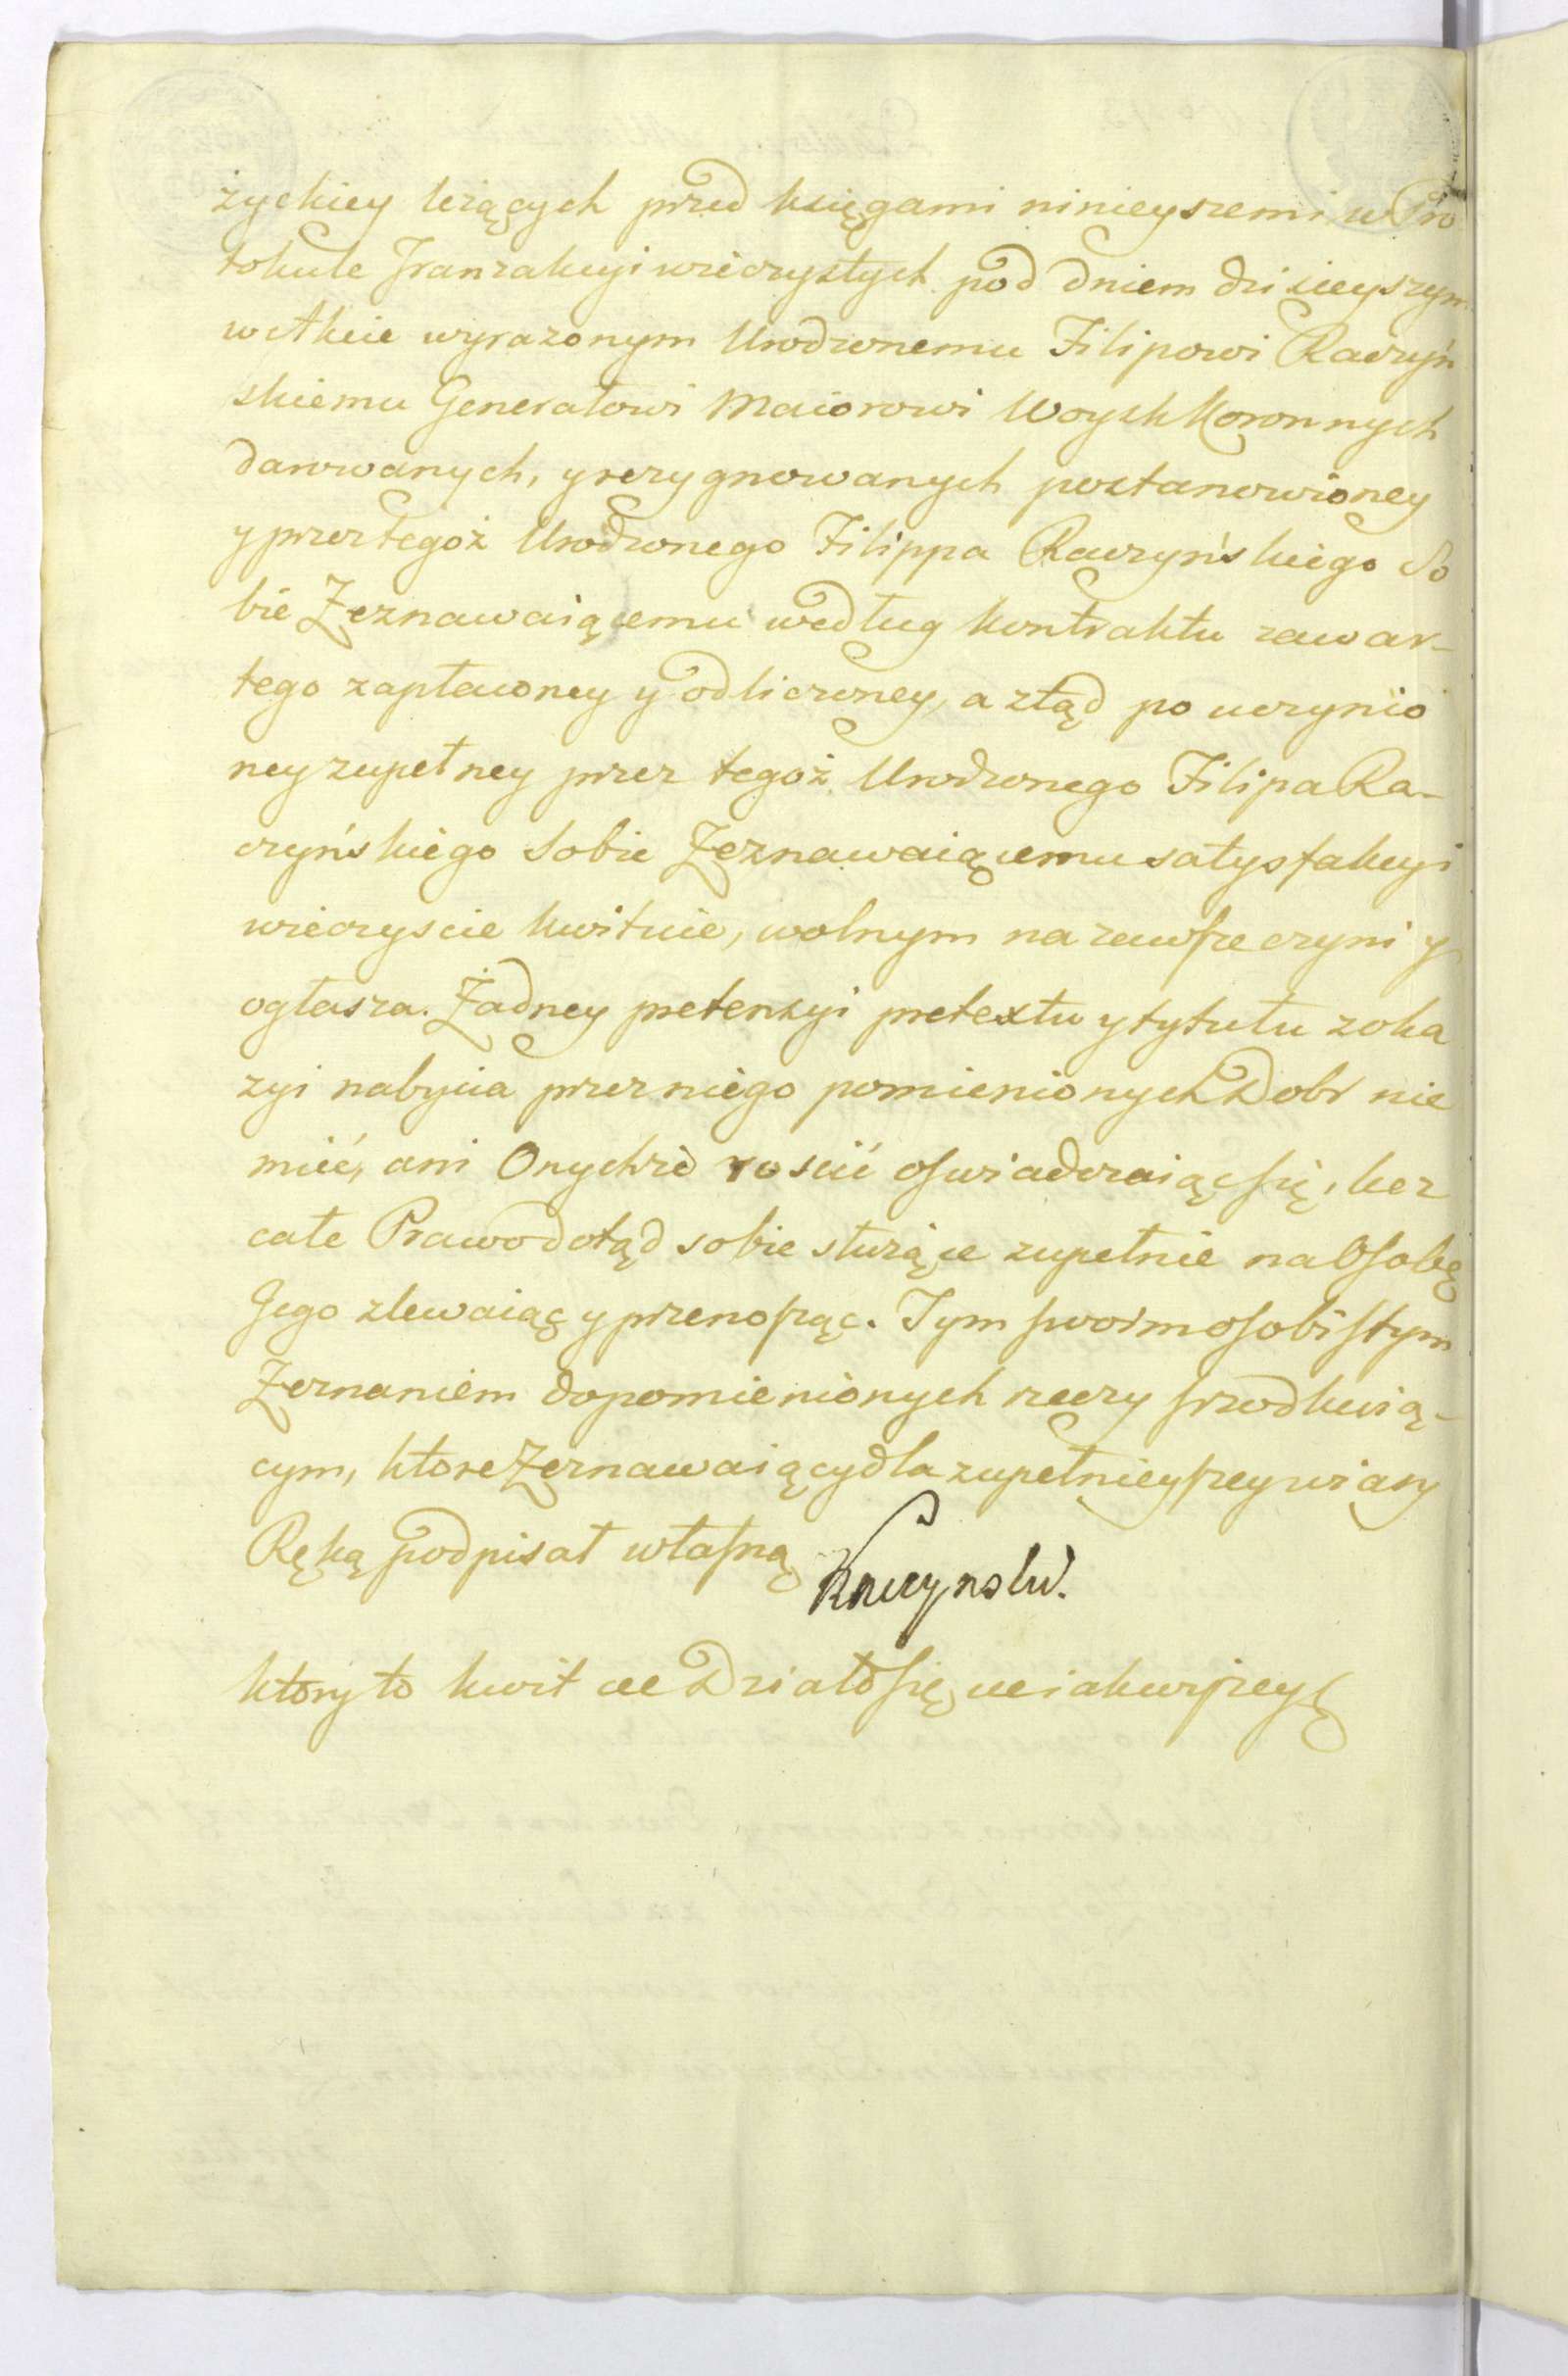 życkiey leżących przed księgami ninieyszemi w Pro
tokule Tranzakcyi wieczystych pod dniem dzisieyszym
w Akcie wyrazonym Urodzonemu Filipowi Raczyń
skiemu Generałowi Maiorowi Woysk Koronnych
darowanych, y rezygnowanych postanowioney
y przez tegoż Urodzonego Filippa Raczyńskiego So
bie Zeznawaiącemu według kontraktu zawar-
tego zapłaconey y odliczoney, a ztąd po uczynio
ney zupełney przez tegoż Urodzonego Filipa Ra-
czyńskiego Sobie Zeznawaiącemu satysfakcyi
wieczyscie kwituie, wolnym na zawsze czyni y
ogłasza. Żadney pretensyi pretextu y tytułu z oka
zyi nabycia przez niego pomienionych Dobr nie
mieć, ani Onychże rościć oswiadczaiąc się, lecz
całe Prawo dotąd sobie służące zupełnie na Osobę
Jego zlewaiąc y przenosząc. Tym swoim osobistym
Zeznaniem do pomienionych rzeczy srzodkuią-
cym, ktore Zeznawaiący dla zupełnieyszey wiary
Ręką podpisał własną
Raczynski.
ktory to kwit ee Działo się, ee iak wyżey